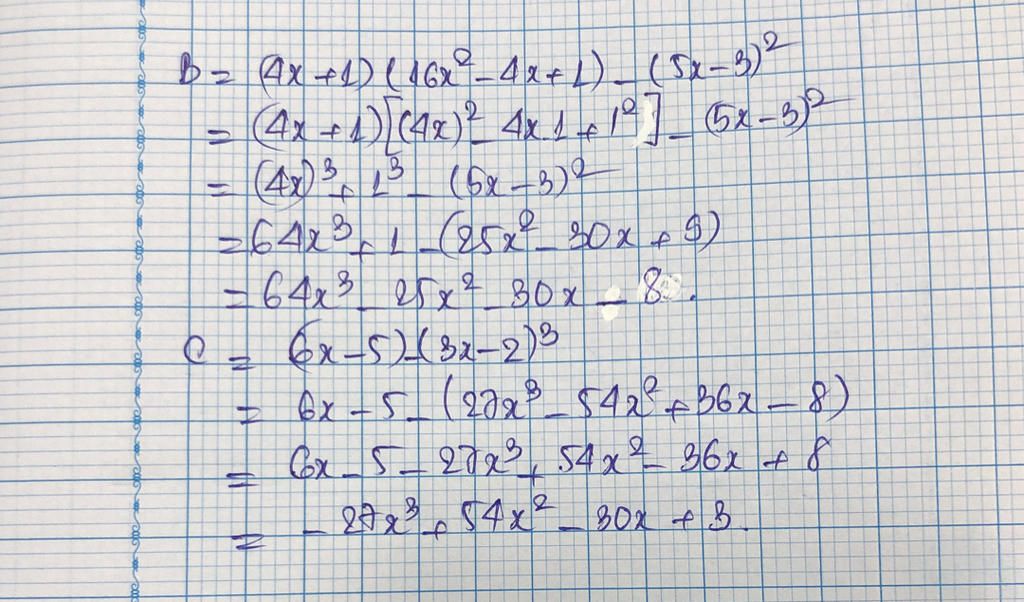 B = (4x+1)(16x² - 4x+1) - (5x-3)²
= (4x+1)[(4x)² - 4x.1 + 1²] - (5x-3)²
= (4x)³ + 1³ - (5x-3)²
= 64x³ + 1 - (25x² - 30x + 9)
= 64x³ - 25x² - 30x - 8.
C = (6x-5) - (3x-2)³
= 6x - 5 - (27x³ - 54x² + 36x - 8)
= 6x - 5 - 27x³ + 54x² - 36x + 8
= - 27x³ + 54x² - 30x + 3.